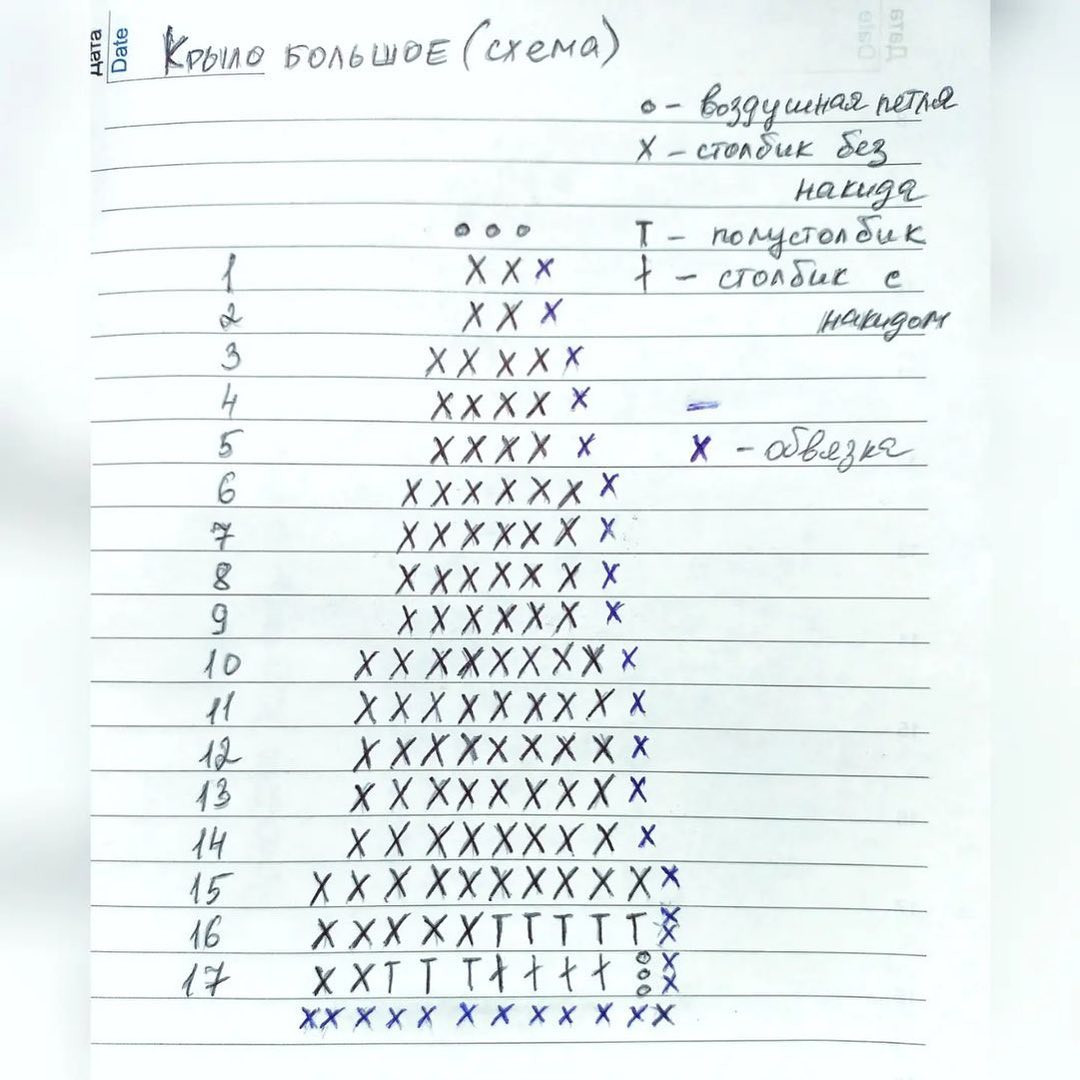 Дата
Date
Крыло большое (схема)
o – воздушная петля
X – столбик без
накида
o o o
T – полустолбик
1 X X x
† – столбик с
2 X X x
накидом
3 X X X X x
4 X X X X x
5 X X X X x
x – обвязка
6 X X X X X X x
7 X X X X X X x
8 X X X X X X x
9 X X X X X X x
10 X X X X X X X X x
11 X X X X X X X X x
12 X X X X X X X X x
13 X X X X X X X X x
14 X X X X X X X X x
15 X X X X X X X X X X x
16 X X X X X T T T T T x x
17 X X T T T † † † † o o o x x
x x x x x x x x x x x x